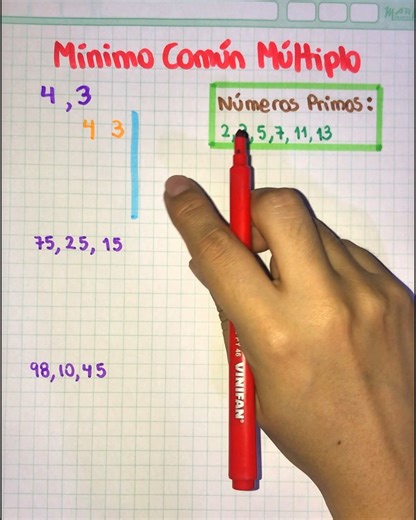 Mínimo Común Múltiplo
4, 3
Números Primos:
2, 3, 5, 7, 11, 13
4 3
75, 25, 15
98, 10, 45
VINIFAN